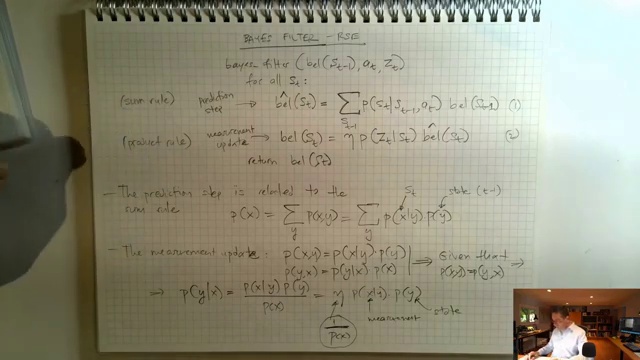 BAYES FILTER - RSE
bayes filter (bel(S_{t-1}), a_t, Z_t)
for all S_t:
(sum rule) prediction step → bel̂(S_t) = ∑_{S_{t-1}} p(S_t|S_{t-1}, a_t) bel(S_{t-1}) (1)
(product rule) measurement update → bel(S_t) = η p(Z_t|S_t) bel̂(S_t) (2)
return bel(S_t)
S_t state (t-1)
- The prediction step is related to the
sum rule p(x) = ∑_y p(x,y) = ∑_y p(x|y) p(y)
- The measurement update: p(x,y) = p(x|y) · p(y)
p(y,x) = p(y|x) p(x)
⟹ Given that p(x,y) = p(y,x) ⟹
⟹ p(y|x) = p(x|y) p(y) / p(x) = η p(x|y) · p(y)
measurement state
1/p(x)